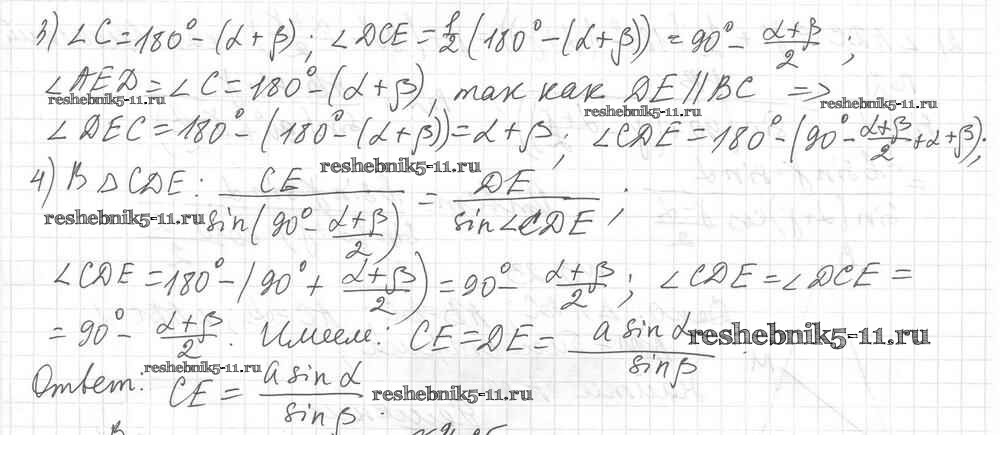 3) ∠C = 180° - (α + β); ∠DCE = 1/2 (180° - (α + β)) = 90° - (α + β)/2;
∠AED = ∠C = 180° - (α + β), так как DE ∥ BC =>
reshebnik5-11.ru reshebnik5-11.ru reshebnik5-11.ru
∠DEC = 180° - (180° - (α + β)) = α + β; ∠CDE = 180° - (90° - (α + β)/2 + α + β);
reshebnik5-11.ru
4) В △CDE: CE/sin(90° - (α + β)/2) = DE/sin∠CDE;
reshebnik5-11.ru reshebnik5-11.ru
∠CDE = 180° - (90° + (α + β)/2) = 90° - (α + β)/2; ∠CDE = ∠DCE =
= 90° - (α + β)/2. Имеем: CE = DE = a sin α/sin β.
reshebnik5-11.ru
reshebnik5-11.ru
Ответ: CE = a sin α/sin β.
reshebnik5-11.ru